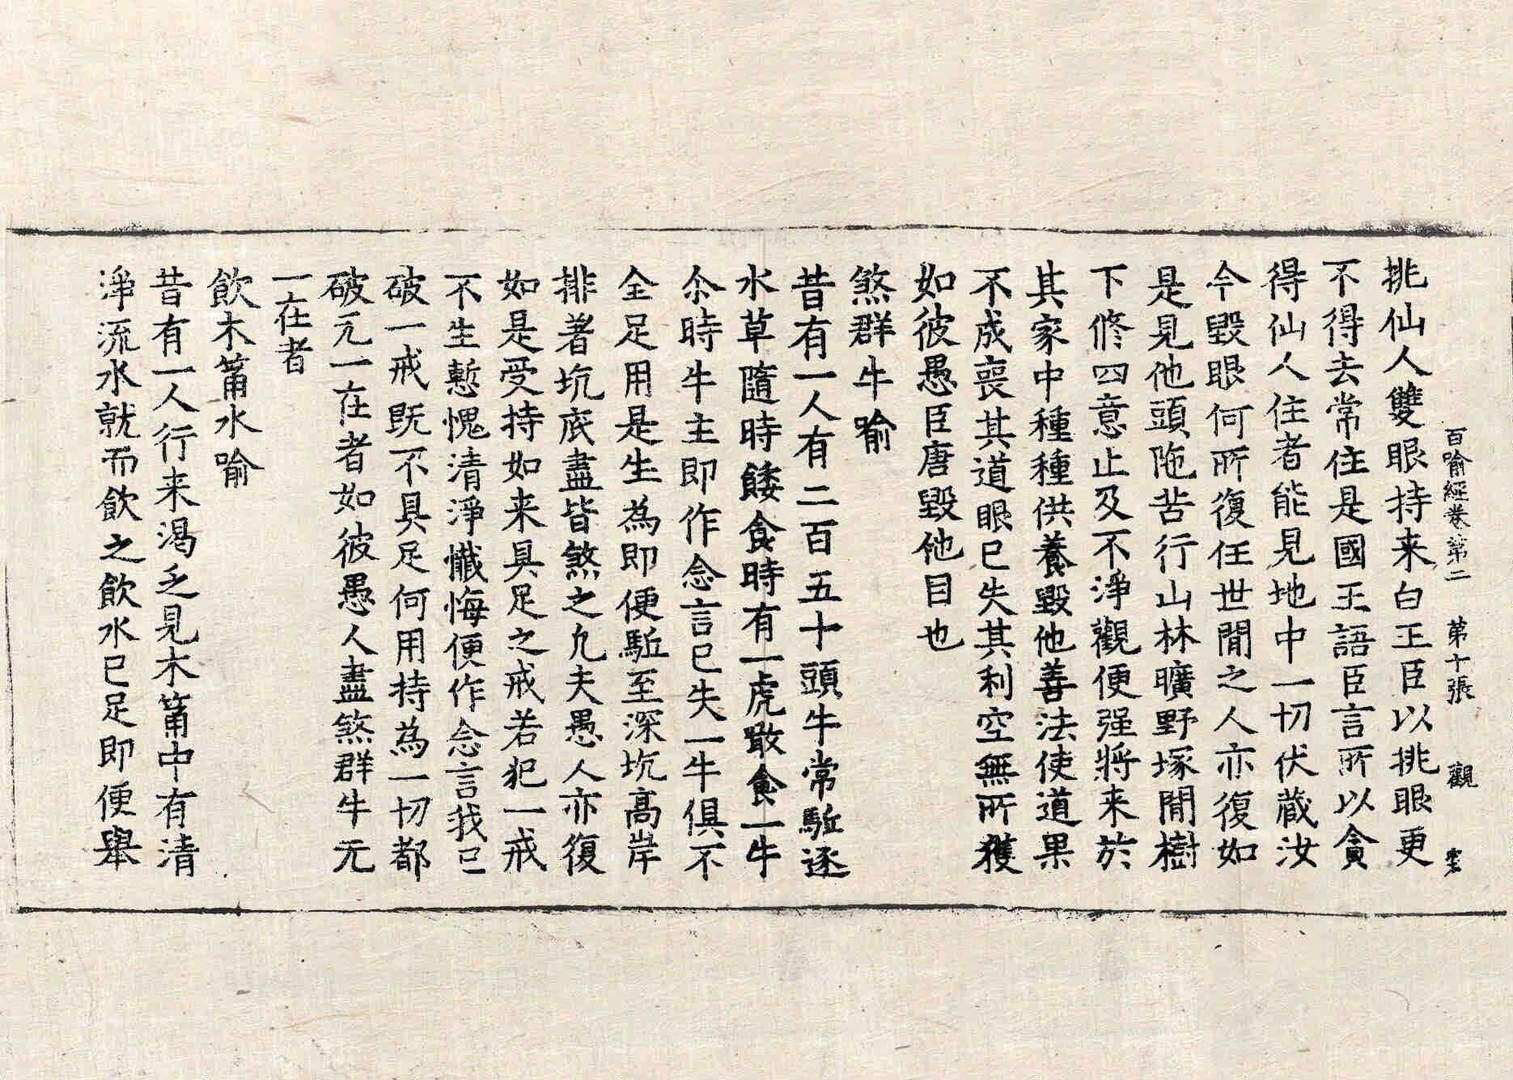 百喻經卷第二　第十張　觀
挑仙人雙眼持来白王臣以挑眼更
不得去常住是國王語臣言所以貪
得仙人住者能見地中一切伏蔵汝
今毀眼何所復任世間之人亦復如
是見他頭陁苦行山林曠野塚間樹
下修四意止及不淨觀便强將来於
其家中種種供養毀他善法使道果
不成喪其道眼已失其利空無所獲
如彼愚臣唐毀他目也
煞群牛喻
昔有一人有二百五十頭牛常駈逐
水草隨時餧食時有一虎噉食一牛
尒時牛主即作念言已失一牛俱不
全足用是生為即便駈至深坑高岸
排著坑底盡皆煞之凢夫愚人亦復
如是受持如来具足之戒若犯一戒
不生慙愧清淨懺悔便作念言我已
破一戒既不具足何用持為一切都
破无一在者如彼愚人盡煞群牛无
一在者
飲木筩水喻
昔有一人行来渴乏見木筩中有清
淨流水就而飲之飲水已足即便舉